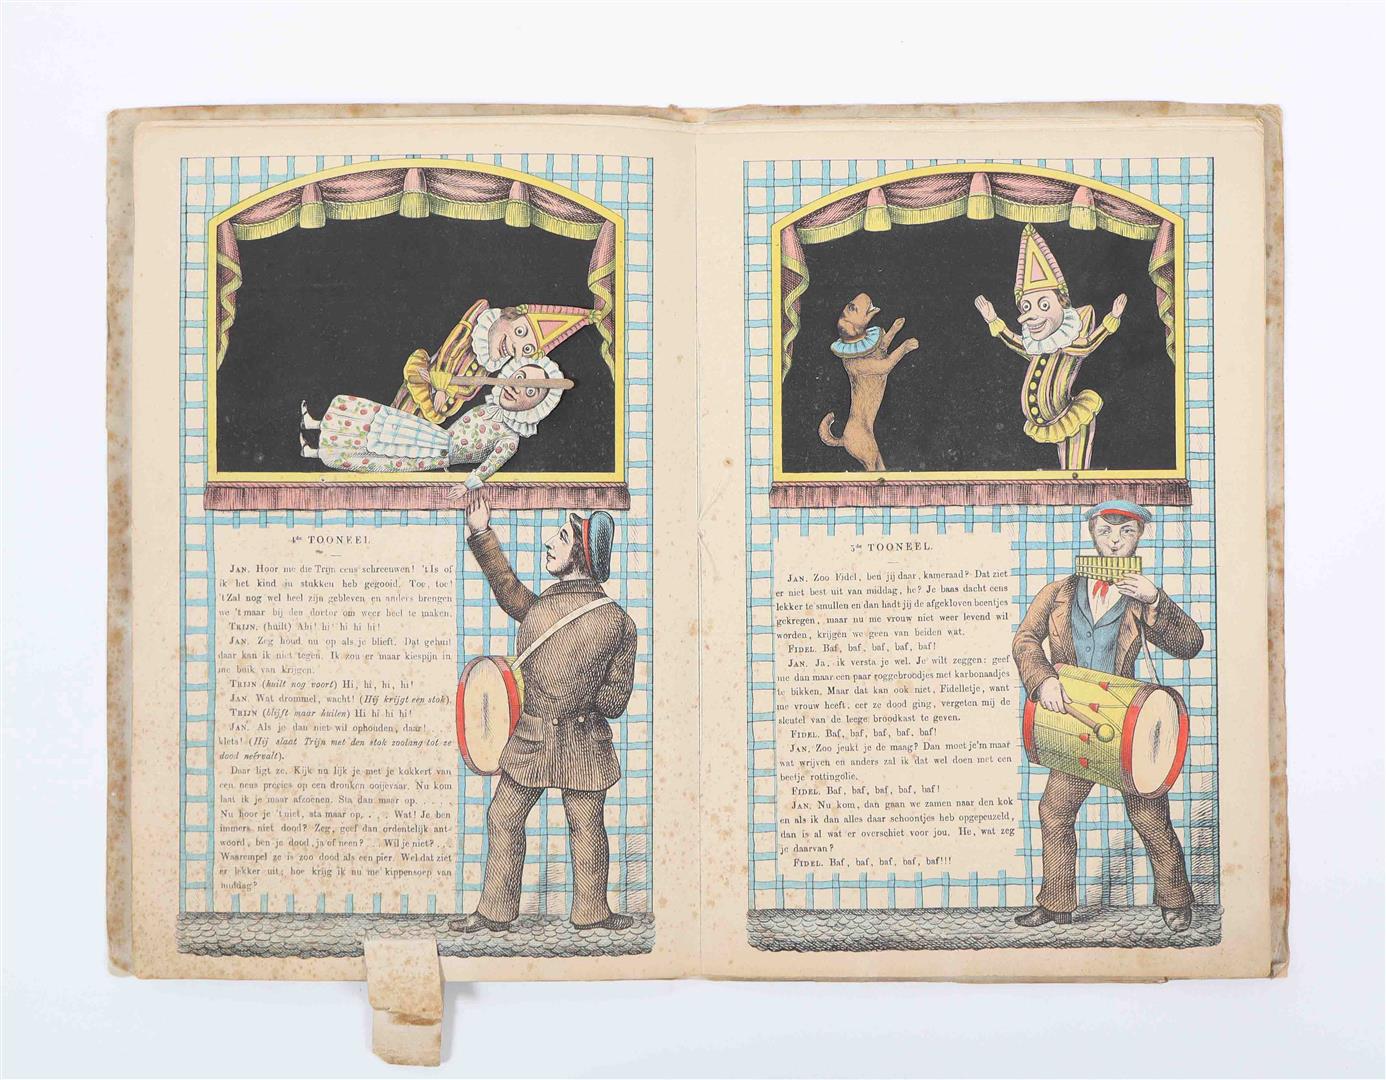 4de TOONEEL
JAN. Hoor me die Trijn eens schreeuwen! 't Is of
ik het kind in stukken heb gegooid. Toe, toe!
't Zal nog wel heel zijn gebleven en anders brengen
we 't maar bij den doctor om weer heel te maken.
TRIJN. (huilt) Ahi! hi! hi! hi! hi!
JAN. Zeg houd nu op als je blieft. Dat gehuil
daar kan ik niet tegen. Ik zou er maar kiespijn in
me buik van krijgen.
TRIJN (huilt nog voort) Hi, hi, hi, hi!
JAN. Wat drommel, wacht! (Hij krijgt een stok).
TRIJN (blijft maar huilen) Hi hi hi hi!
JAN. Als je dan niet wil ophouden, daar!
klets! (Hij slaat Trijn met den stok zoolang tot ze
dood neêrvalt).
Daar ligt ze. Kijk nu lijk je met je kokkert van
een neus precies op een dronken ooijevaar. Nu kom
laat ik je maar afzoenen. Sta dan maar op. . . . .
Nu hoor je 't niet, sta maar op, . . . Wat! Je ben
immers niet dood? Zeg, geef dan ordentelijk ant-
woord, ben je dood, ja of neen? . . . Wil je niet? . . .
Waarempel ze is zoo dood als een pier. Wel dat ziet
er lekker uit; hoe krijg ik nu me kippensoep van
middag?
5de TOONEEL.
JAN. Zoo Fidel, ben jij daar, kameraad? Dat ziet
er niet best uit van middag, he? Je baas dacht eens
lekker te smullen en dan hadt jij de afgekloven beentjes
gekregen, maar nu me vrouw niet weer levend wil
worden, krijgen we geen van beiden wat.
FIDEL. Baf, baf, baf, baf, baf!
JAN. Ja, ik versta je wel. Je wilt zeggen: geef
me dan maar een paar roggebroodjes met karbonaadjes
te bikken. Maar dat kan ook niet, Fidelletje, want
me vrouw heeft, eer ze dood ging, vergeten mij de
sleutel van de leege broodkast te geven.
FIDEL. Baf, baf, baf, baf, baf!
JAN. Zoo jeukt je de maag? Dan moet je'm maar
wat wrijven en anders zal ik dat wel doen met een
beetje rottingolie.
FIDEL. Baf, baf, baf, baf, baf!
JAN. Nu kom, dan gaan we zamen naar den kok
en als ik dan alles daar schoontjes heb opgepeuzeld,
dan is al wat er overschiet voor jou. He, wat zeg
je daarvan?
FIDEL. Baf, baf, baf, baf, baf!!!